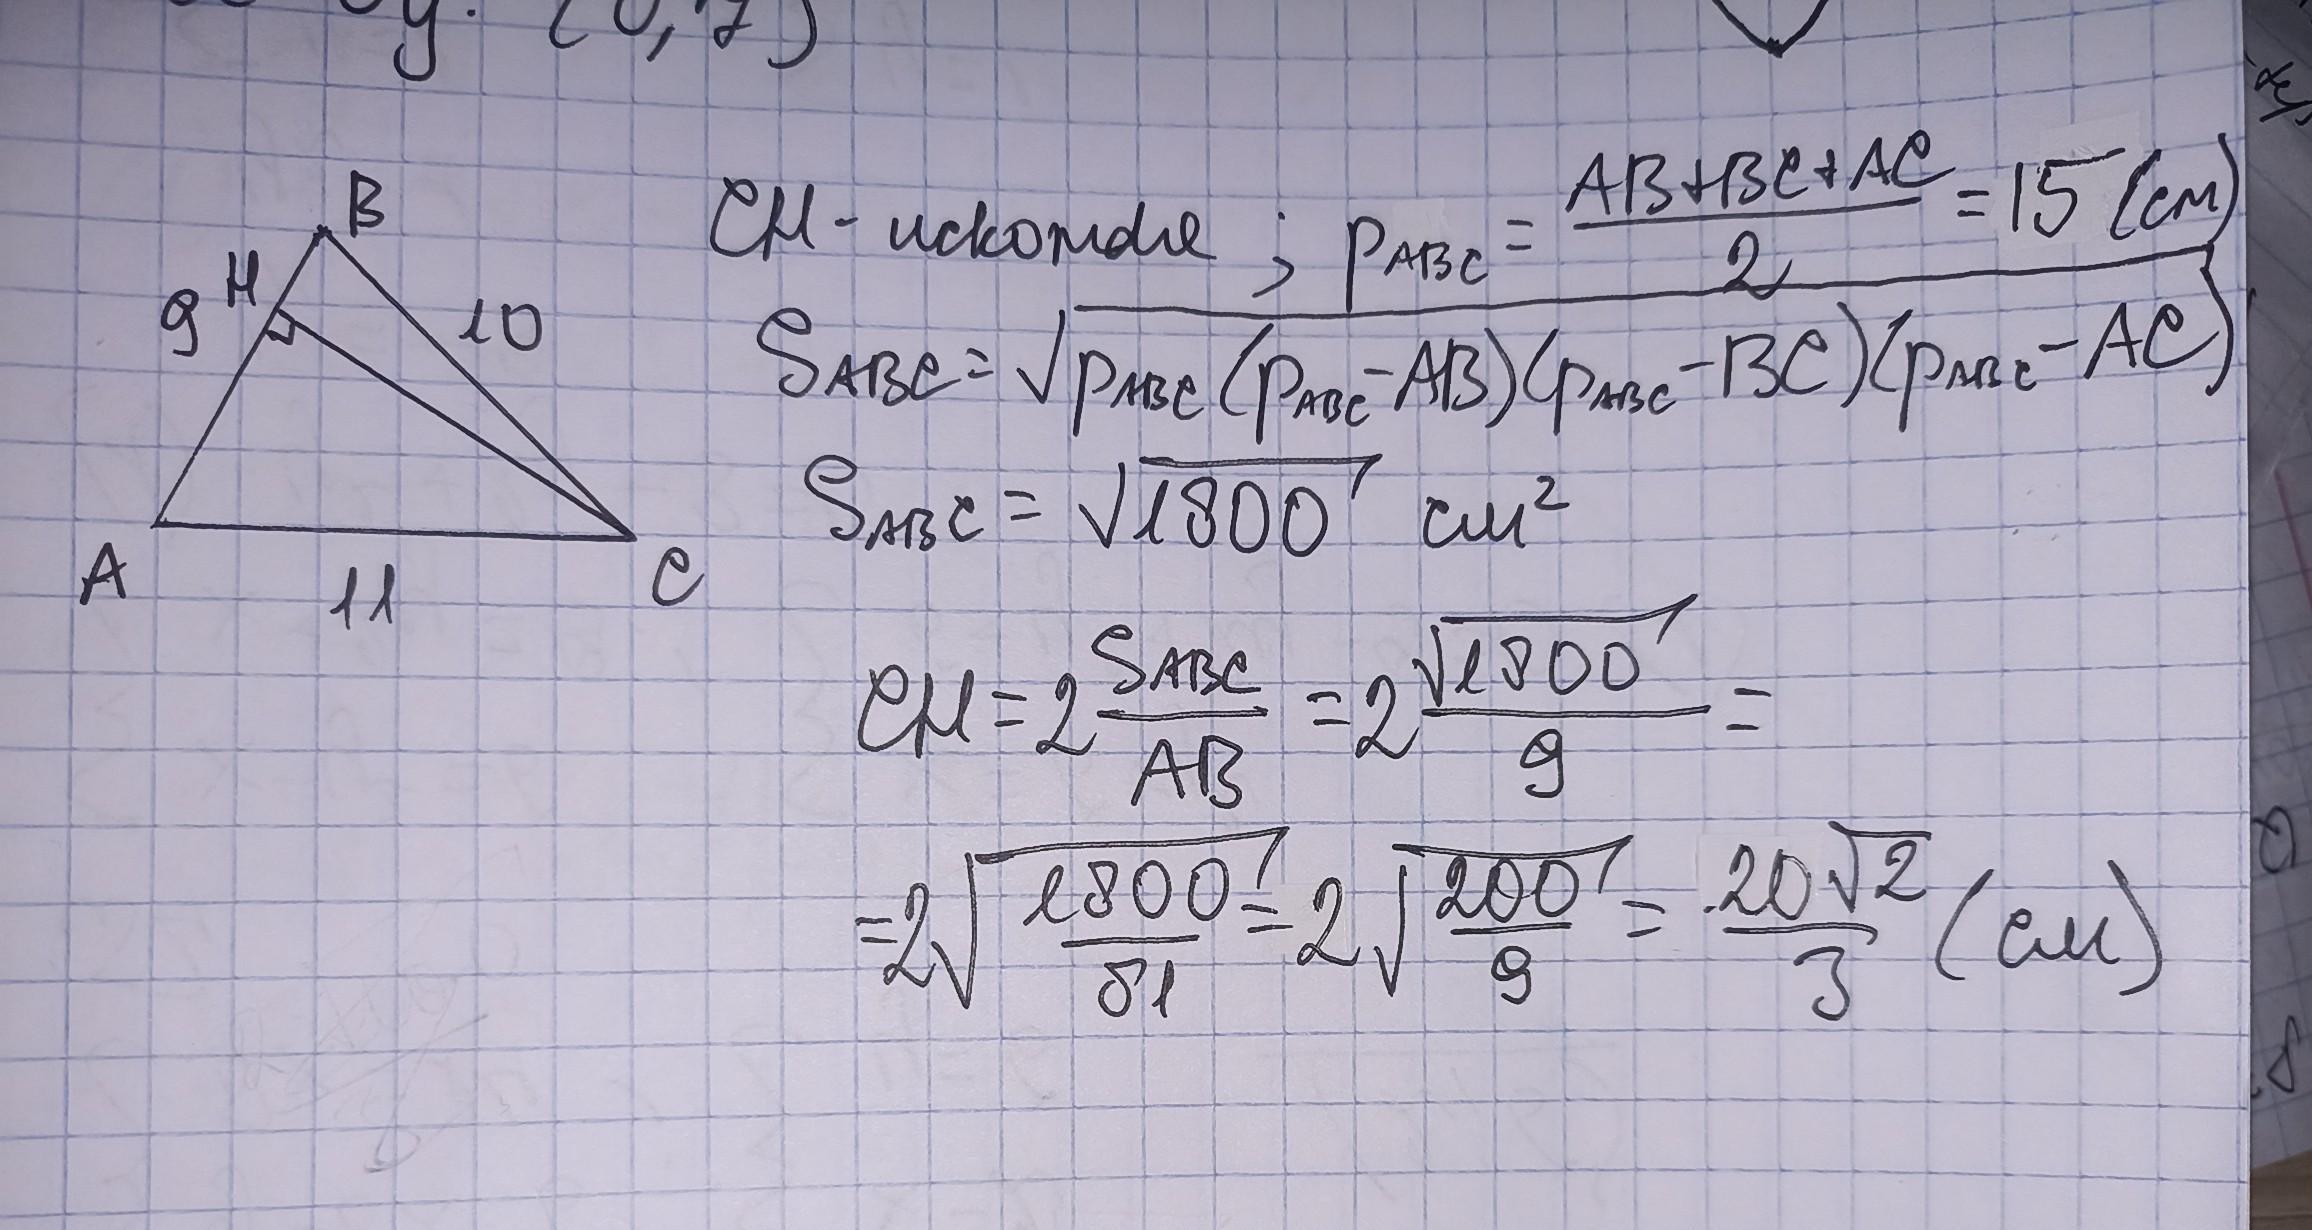 у. (0,7)
B
H
9
10
A
11
C
CH - искомая ; p_ABC = (AB+BC+AC)/2 = 15 (см)
S_ABC = √(p_ABC (p_ABC - AB)(p_ABC - BC)(p_ABC - AC))
S_ABC = √1800 см²
CH = 2 S_ABC/AB = 2 √1800/9 =
= 2√(1800/81) = 2√(200/9) = 20√2/3 (см)